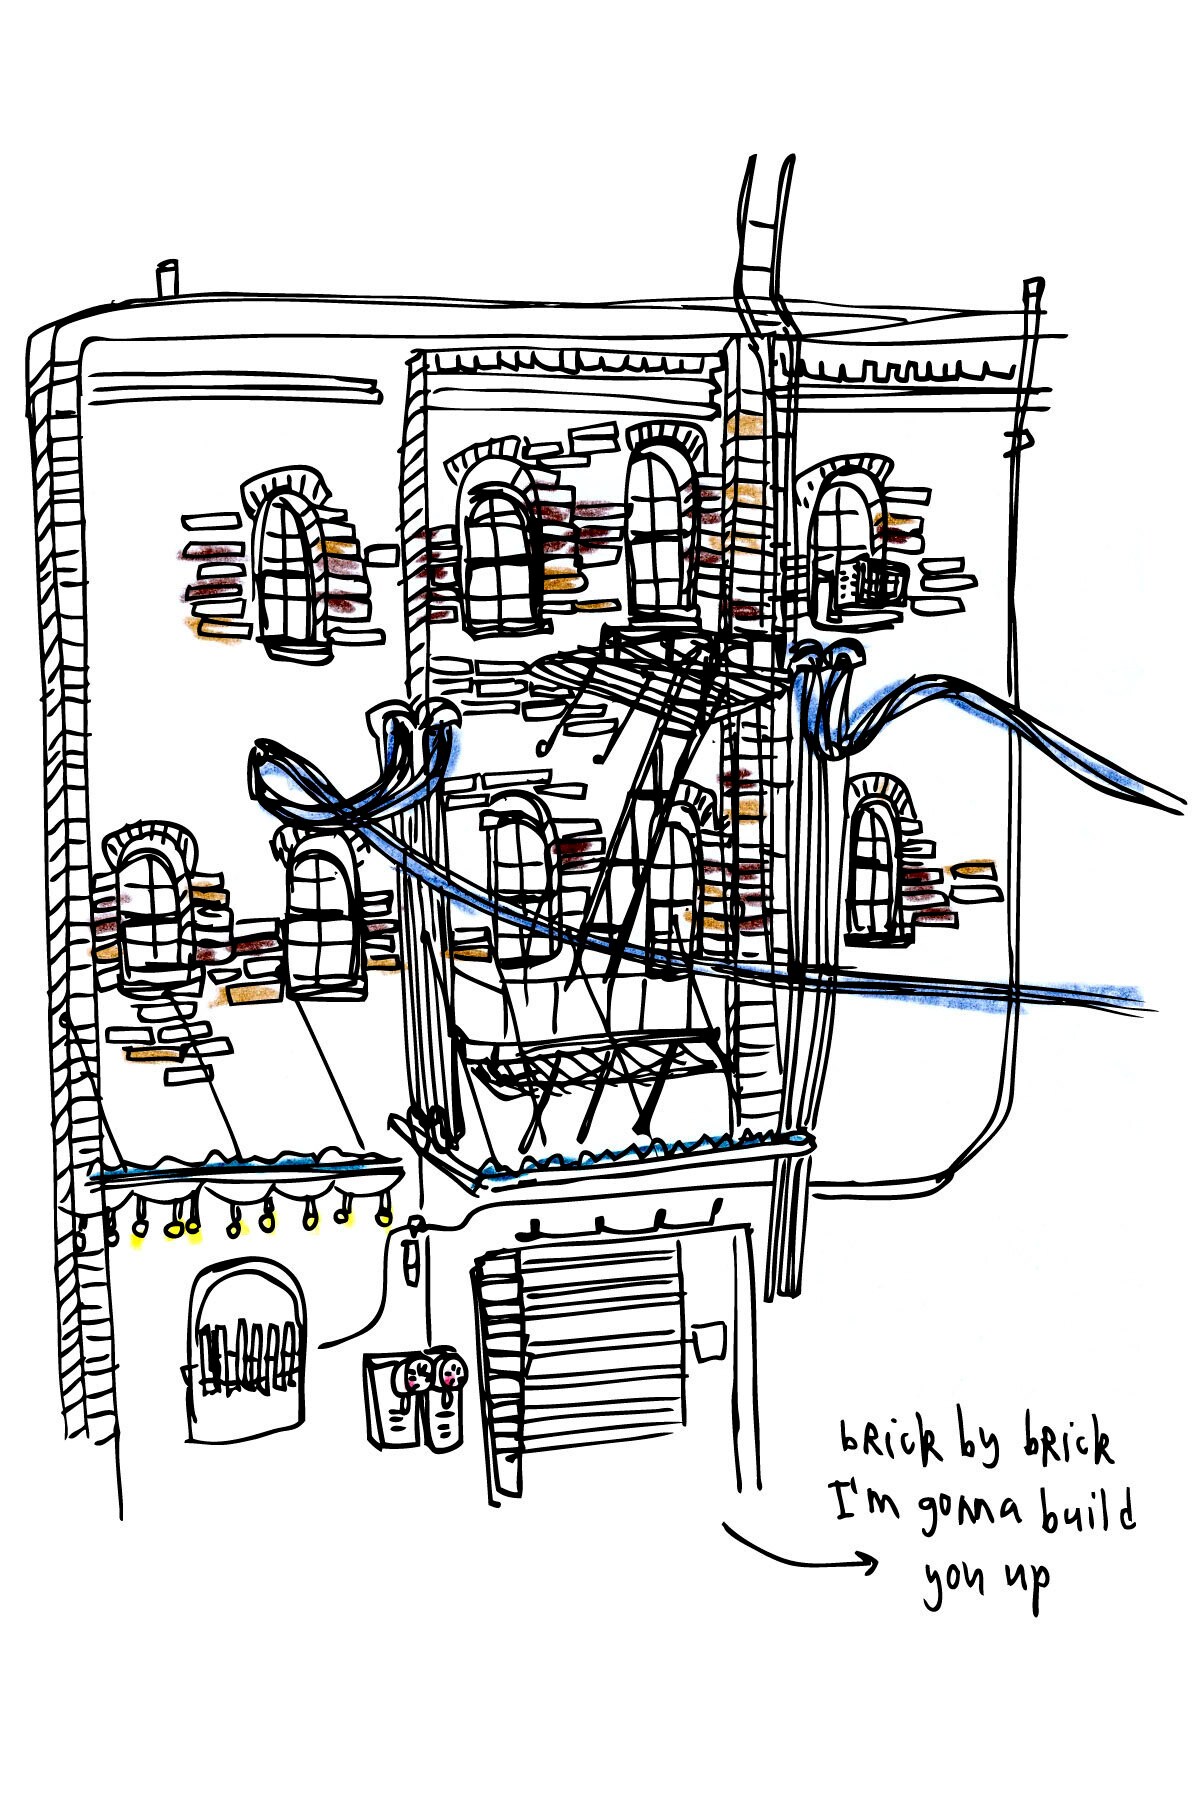 bRick by bRick
I'm gonna build
you up